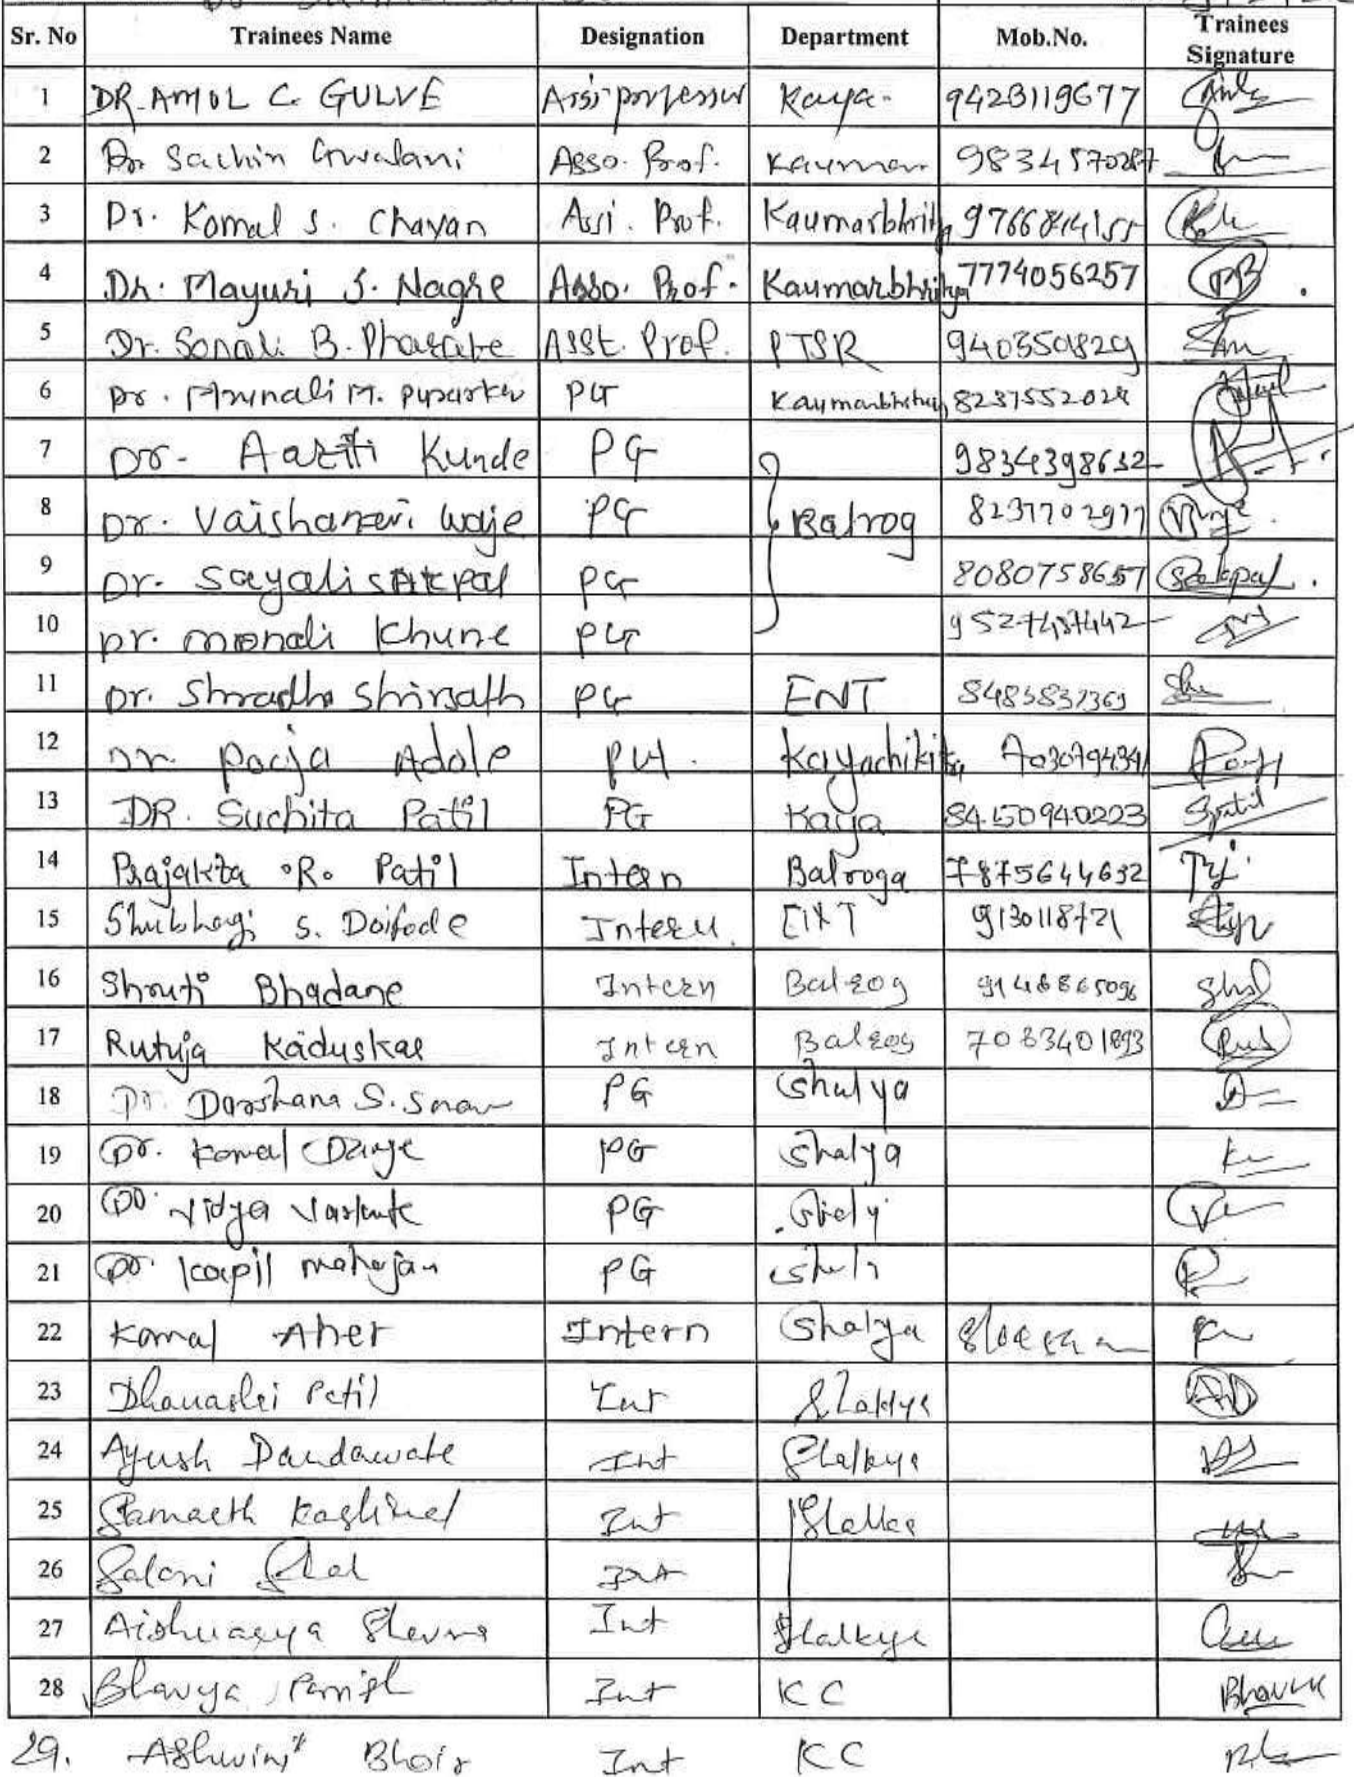 Sr. No Trainees Name Designation Department Mob.No. Trainees Signature
1 DR. AMOL C. GULVE Assi professor Kaya- 9423119677
2 Dr. Sachin Gwalani Asso. Prof. Kaumar 9834570287
3 Dr. Komal S. Chavan Assi. Prof. Kaumarbhritya 9766814155
4 Dr. Mayuri S. Nagre Asso. Prof. Kaumarbhritya 7774056257
5 Dr. Sonali B. Pharate Asst. Prof. PTSR 9403501829
6 Dr. Mrunali M. PG Kaumarbhritya 8237552028
7 Dr. Aarti Kunde PG 9834398632
8 Dr. Vaishanavi Waje PG Balrog 8237702977
9 Dr. Sayali SAKpal PG 8080758657 Sakpal
10 Dr. monali Khune PG 9527487442
11 Dr. Shradha Shirsath PG ENT 8483837369
12 Dr. Pooja Adole PG. Kayachikitsa 7030794341
13 DR. Suchita Patil PG Kaya 8450940223 Spatil
14 Prajakta R. Patil Intern Balroga 7875644632
15 Shubhagi S. Doifode Intern ENT 9130118721
16 Shruti Bhadane Intern Balrog 9146865096
17 Rutuja Kaduskar Intern Balrog 7083401893
18 Dr. Darshana S. PG Shalya
19 Dr. Komal Dange PG Shalya
20 Dr. Vidya PG
21 Dr. Kapil Mahajan PG
22 Komal Aher Intern Shalya
23 Dhanashri Patil Int Shalkya
24 Ayush Dandawate Int Shalkya
25 Samarth Int
26 Saloni Int
27 Aishwarya Int Shalkya
28 Bhavya Int KC
29. Ashwini Bhoir Int KC